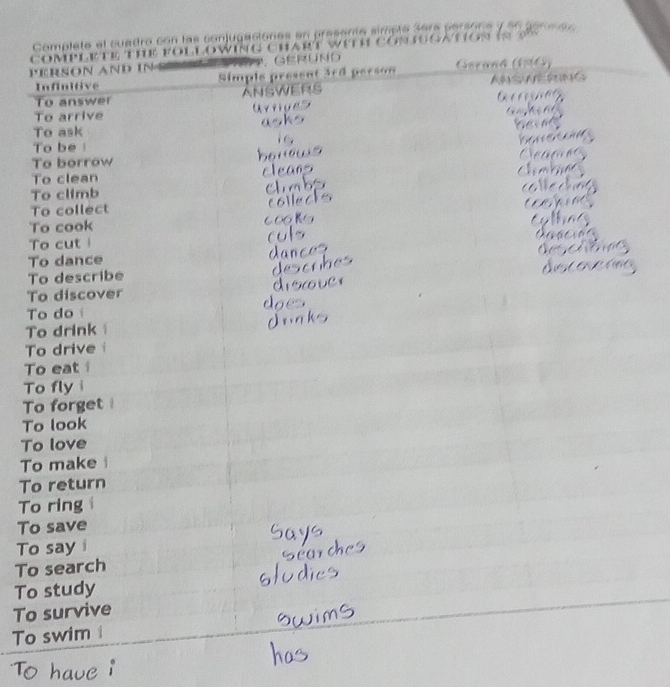 Complete el cuadro con las conjugaciones en presente simple 3era persona y en gerundio
COMPLETE THE FOLLOWING CHART WITH CONJUGATION IN 3
PERSON AND IN GERUND
Infinitive Simple present 3rd person Gerund (ING)
To answer ANSWERS ANSWERING
To arrive arrives arriving
To ask asks asking
To be i is being
To borrow borrows borrowing
To clean cleans cleaning
To climb climbs climbing
To collect collects collecting
To cook cooks cooking
To cut i cuts cutting
To dance dances dancing
To describe describes describing
To discover discover discovering
To do i does
To drink i drinks
To drive i
To eat i
To fly i
To forget i
To look
To love
To make i
To return
To ring i
To save
To say i says
To search searches
To study studies
To survive
To swim i swims
To have i has